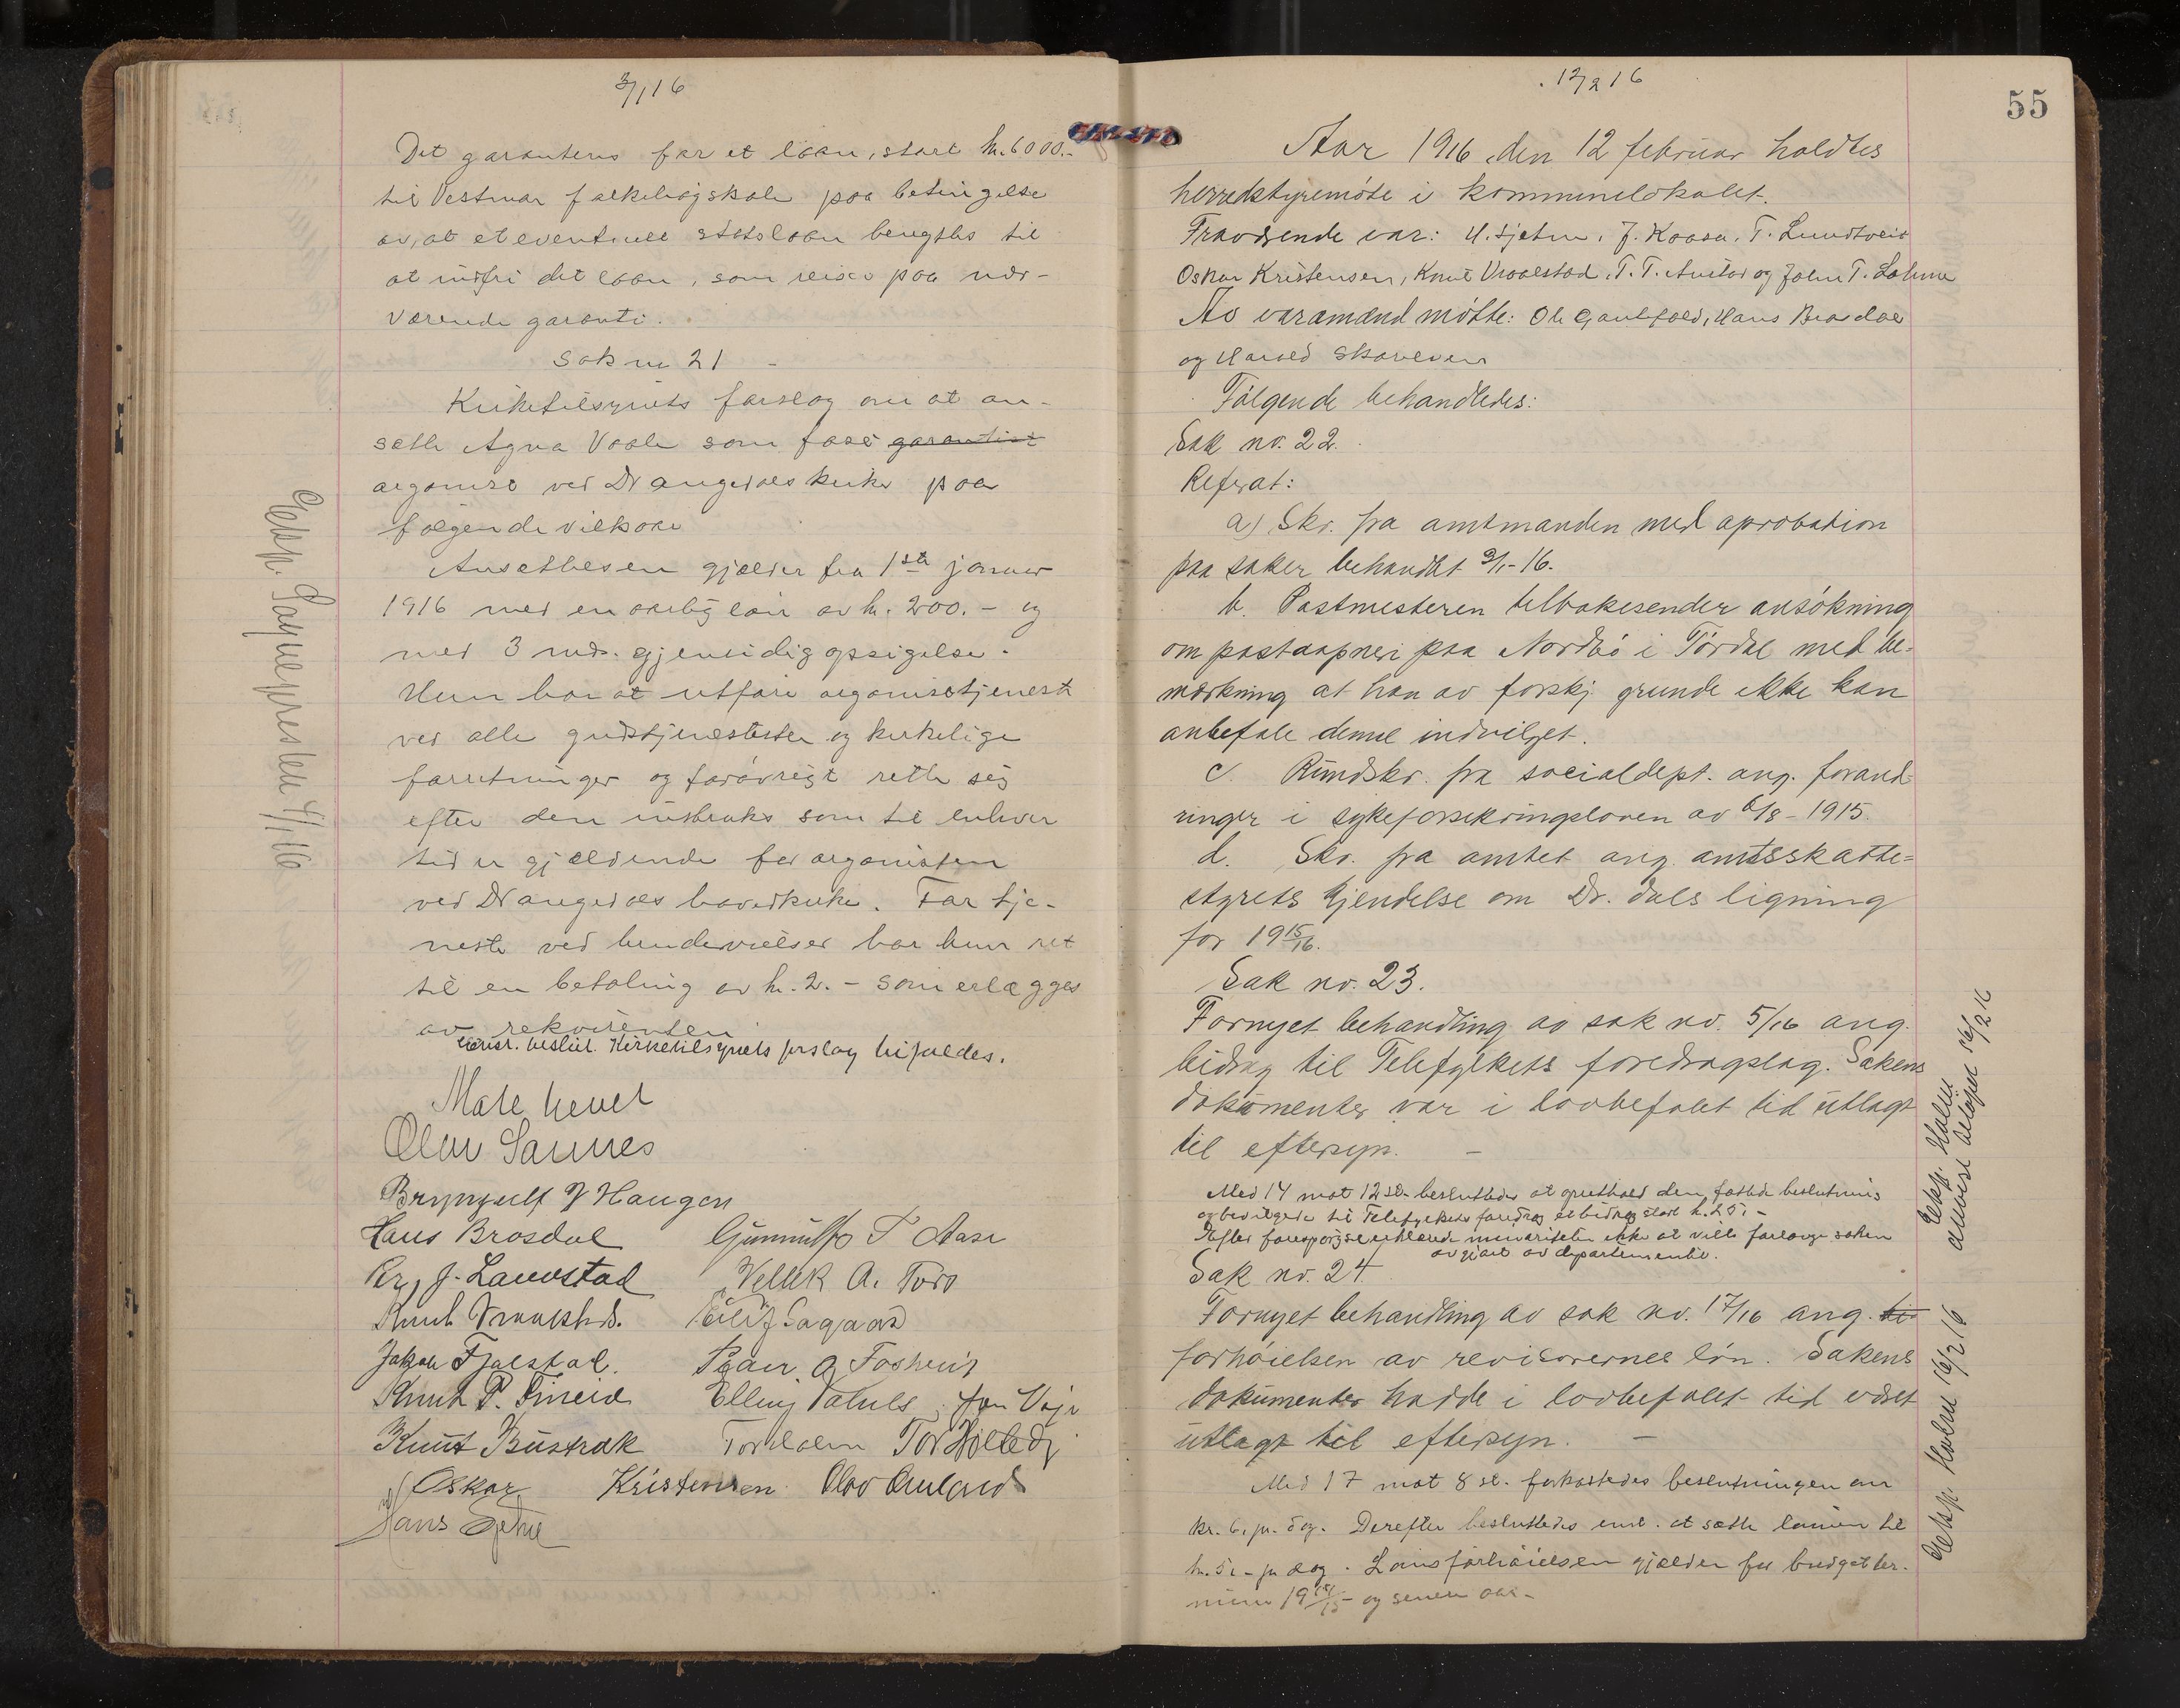 3/1 16
Det garanteres for et laan, stort kr. 6000.-
til Vestmar folkehøgskole paa betingelse
av, at et eventuell statslaan benyttes til
at indfri det laan, som reises paa nær-
værende garanti.
Sak nr 21 -
Kirketilsynets forslag om at an-
sætte Agna Vaale som fast garantist
organist ved Drangedals kirke paa
følgende vilkaar
Ansættelsen gjælder fra 1ste januar
1916 med en aarlig løn av kr. 200.- og
med 3 mdr. gjensidig opsigelse.
Hun har at utføre organisttjeneste
ved alle gudstjenestester og kirkelige
forretninger og forøvrigt rette sig
efter den instruks som til enhver
tid er gjældende for organisten
ved Drangedals hovedkirke. For tje-
neste ved brudevielser har hun ret
til en betaling av kr. 2.- som erlægges
av rekvirenten
enst. beslut. Kirketilsynets forslag bifaldes.
Møte hevet
Olav Sannes
Brynjulf J Haugen
Hans Brosdal Gunnulf T Aase
Kr, J. Lauvstad Vellek A. Tørd
Knut Vraalstad. Eilif Gagaas
Jakob Fjalestad. Peder A Fosheim
Knut P. Fineid Elling Vahuls Jon Voje
Knut Bustrak Tor Holm Tor Holtedj
Oskar Kristensen Olav Omland
Hans Gjetne
Eksp. Sognepresten 4/1 16
12/2 16
55
Aar 1916, den 12 februar holdtes
herredstyremøte i kommunelokalet.
Fraværende var: H. Gjetne, J. Kaasa, T. Lundtveit
Oskar Kristensen, Knut Vraalstad, T. T. Austad og John T. Lohne
Av varamænd møtte: Ole Gautefald, Hans Brosdal
og Harald Skarvern
Følgende behandledes:
Sak no. 22.
Referat:
a) Skr. fra amtmanden med aprobation
paa saker behandlet 3/1-16.
b. Postmesteren tilbakesender ansøkning
om postaapneri paa Nordbø i Tørdal med be-
mærkning at han av forskj. grunde ikke kan
anbefale denne indvilget.
c. Rundskr. fra socialdept. ang. forand-
ringer i sykeforsikringsloven av 6/8 - 1915.
d. Skr. fra amtet ang. amtsskatte=
styrets kjendelse om Dr. Dals ligning
for 1915/16.
Sak no. 23.
Fornyet behandling av sak no. 5/16 ang.
bidrag til Telefylkets foredragslag. Sakens
dokumenter var i lovbefalet tid utlagt
til eftersyn. -
Med 14 mot 12 st. besluttedes at opretholde den fattede beslutning
og bevilgede til Telefylkets foredrag et bidrag stort kr. 25.-
Efter forespørgsel erklærede minoriteten ikke at ville forlange saken
avgjort av departementet.
Sak no. 24.
Fornyet behandling av sak no. 17/16 ang. bi
forhøielsen av revisorernes løn. Sakens
dokumenter hadde i lovbefalet tid været
utlagt til eftersyn. -
Med 17 mot 8 st. forkastedes beslutningen om
kr. 6. pr. dag. Derefter besluttedes enst. at sætte lønnen til
kr. 5.- pr dag. Lønsforhøielsen gjælder for budgetter-
minen 1914/15 og senere aar-
Eksp. Holm
anvist beløpet 16/2 16
Eksp. Holm 16/2 16